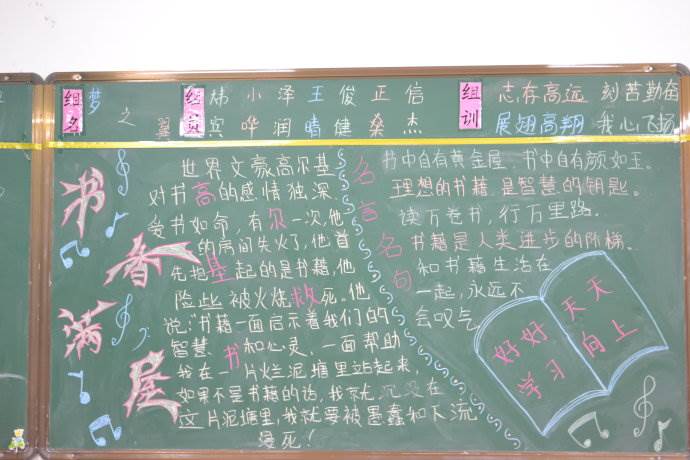 组名
梦之翼
组员
炜 小 泽 王 俊 正 信
宾 晔 润 晴 健 桑 杰
组训
志存高远 刻苦勤奋
展翅高翔 我心飞扬
书香满屋
世界文豪高尔基
对书高的感情独深,
爱书如命,有尔一次,他
的房间失火了,他首
先抱基起的是书籍,他
险些被火烧救死。他
说:"书籍一面启示着我们的
智慧书和心灵,一面帮助
我在一片烂泥塘里站起来,
如果不是书籍的话,我就沉没在
这片泥塘里,我就要被愚蠢和下流
淹死!
名言名句
书中自有黄金屋,书中自有颜如玉。
理想的书籍,是智慧的钥匙。
读万卷书,行万里路.
书籍是人类进步的阶梯.
和书籍生活在
一起,永远不
会叹气
好好学习
天天向上